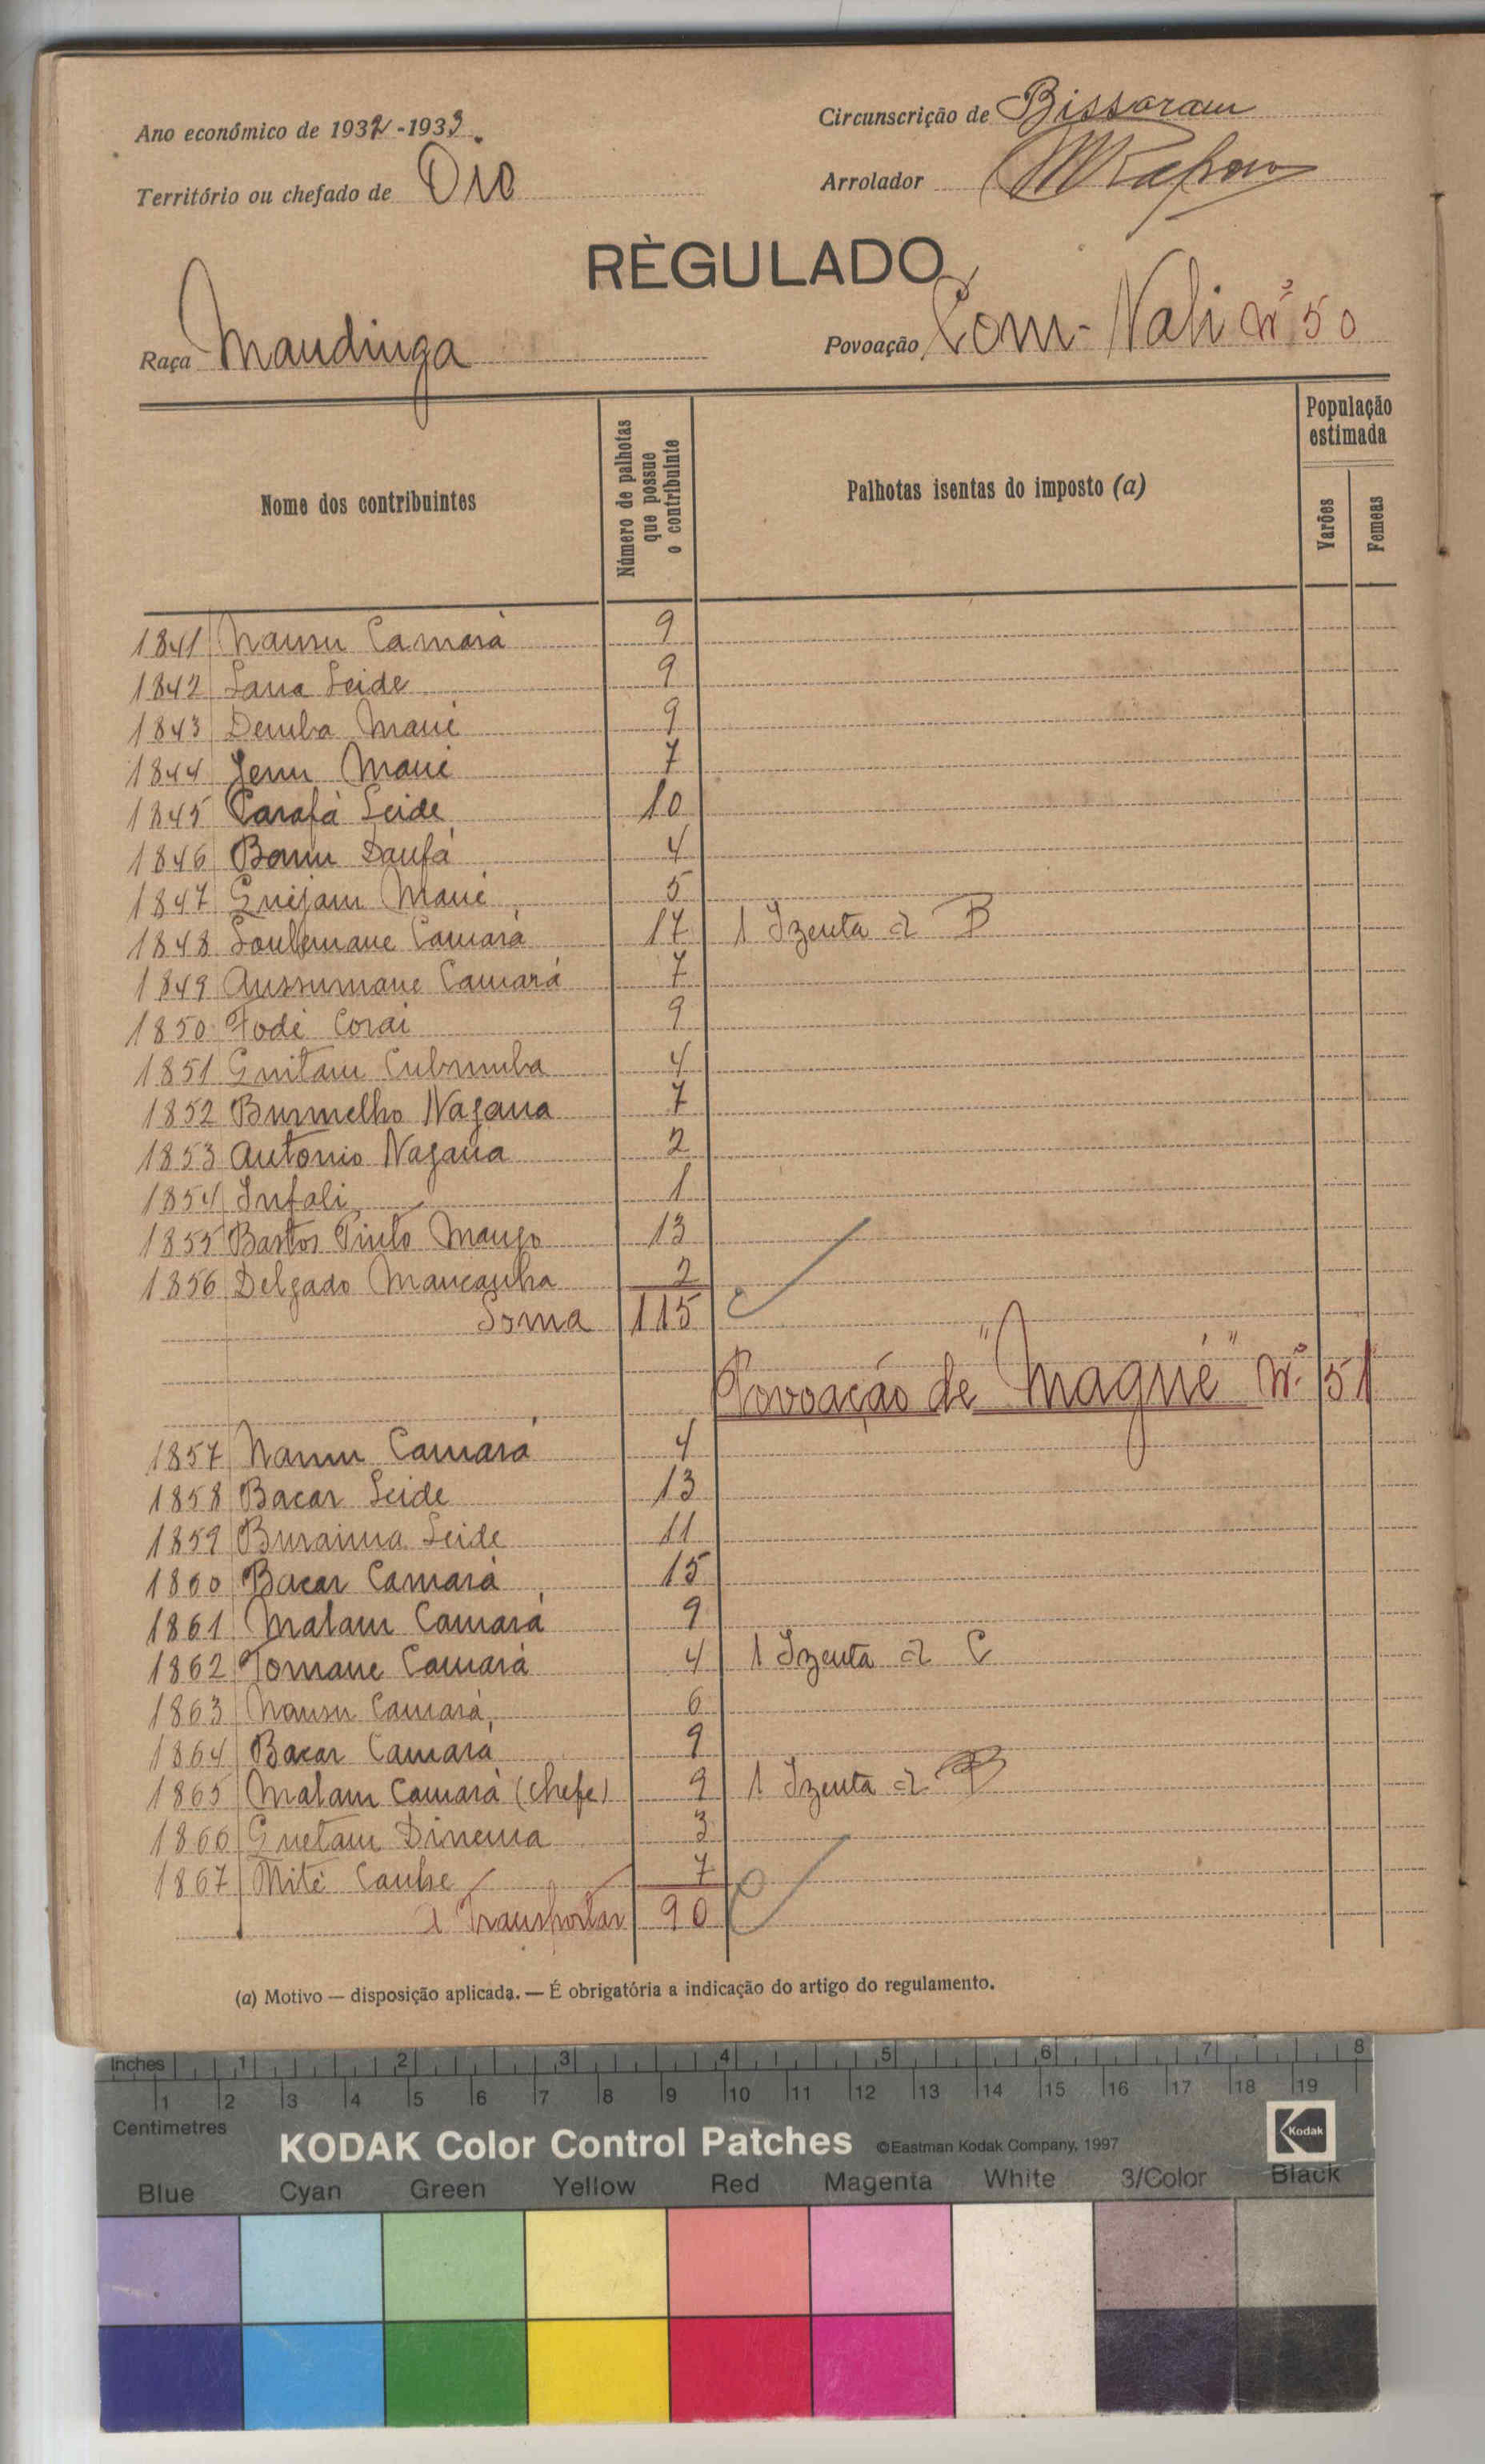 Ano económico de 1932-1933
Circunscrição de Bissoram
Território ou chefado de Oio
Arrolador
RÈGULADO
Raça Mandinga
Povoação Com-Nali Nº 50
Nome dos contribuintes
Número de palhotas que possue o contribuinte
Palhotas isentas do imposto (a)
População estimada
Varões
Femeas
1841 Nansu Camará 9
1842 Sana Seide 9
1843 Demba Mané 9
1844 Jenu Mané 7
1845 Carafá Seide 10
1846 Bonu Danfá 4
1847 Quejam Mané 5
1848 Soulemane Camará 17 1 Izenta al B
1849 Aussumane Camará 7
1850 Fodé Corai 9
1851 Guitam Cubumba 4
1852 Burmelho Nagana 7
1853 Antonio Nagana 2
1854 Infali 1
1855 Bastos Pinto Mango 13
1856 Delgado Mancanha 2
Soma 115
Povoação de "Magué" Nº 51
1857 Nanu Camará 4
1858 Bacar Seide 13
1859 Buraima Seide 11
1860 Bacar Camará 15
1861 Malam Camará 9
1862 Tomane Camará 4 1 Izenta al C
1863 Nansu Camará 6
1864 Bacar Camará 9
1865 Malam Camará (chefe) 9 1 Izenta al B
1866 Guetam Dinema 3
1867 Mité Canhe 7
A Transportar 90
(a) Motivo — disposição aplicada. — É obrigatória a indicação do artigo do regulamento.
Inches 1 2 3 4 5 6 7 8
1 2 3 4 5 6 7 8 9 10 11 12 13 14 15 16 17 18 19
Centimetres
KODAK Color Control Patches ©Eastman Kodak Company, 1997 Kodak
Blue Cyan Green Yellow Red Magenta White 3/Color Black